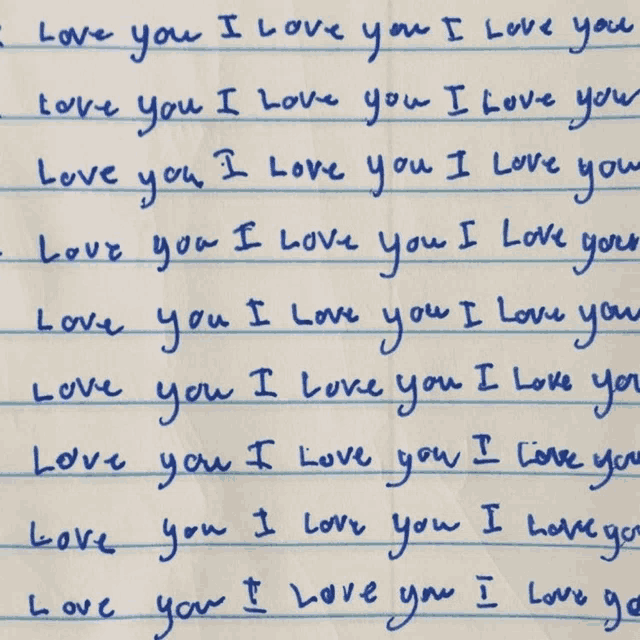 Love you I Love you I Love you
Love you I Love you I Love you
Love you I Love you I Love you
Love you I Love you I Love your
Love you I Love you I Love you
Love you I Love you I Love you
Love you I Love you I Love you
Love you I Love you I Love yo
Love you I Love you I Love yo